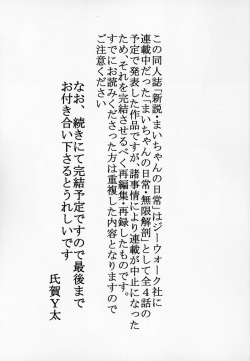 この同人誌「新説・まいちゃんの日常」はジーウォーク社に
連載中だった「まいちゃんの日常・無限解剖」として全4話の
予定で発表した作品ですが、諸事情により連載が中止になった
ため、それを完結させるべく再編集・再録したものです。
すでにお読みくださった方は重複した内容となりますので
ご注意ください
なお、続きにて完結予定ですので最後まで
お付き合い下さるとうれしいです
氏賀Y太